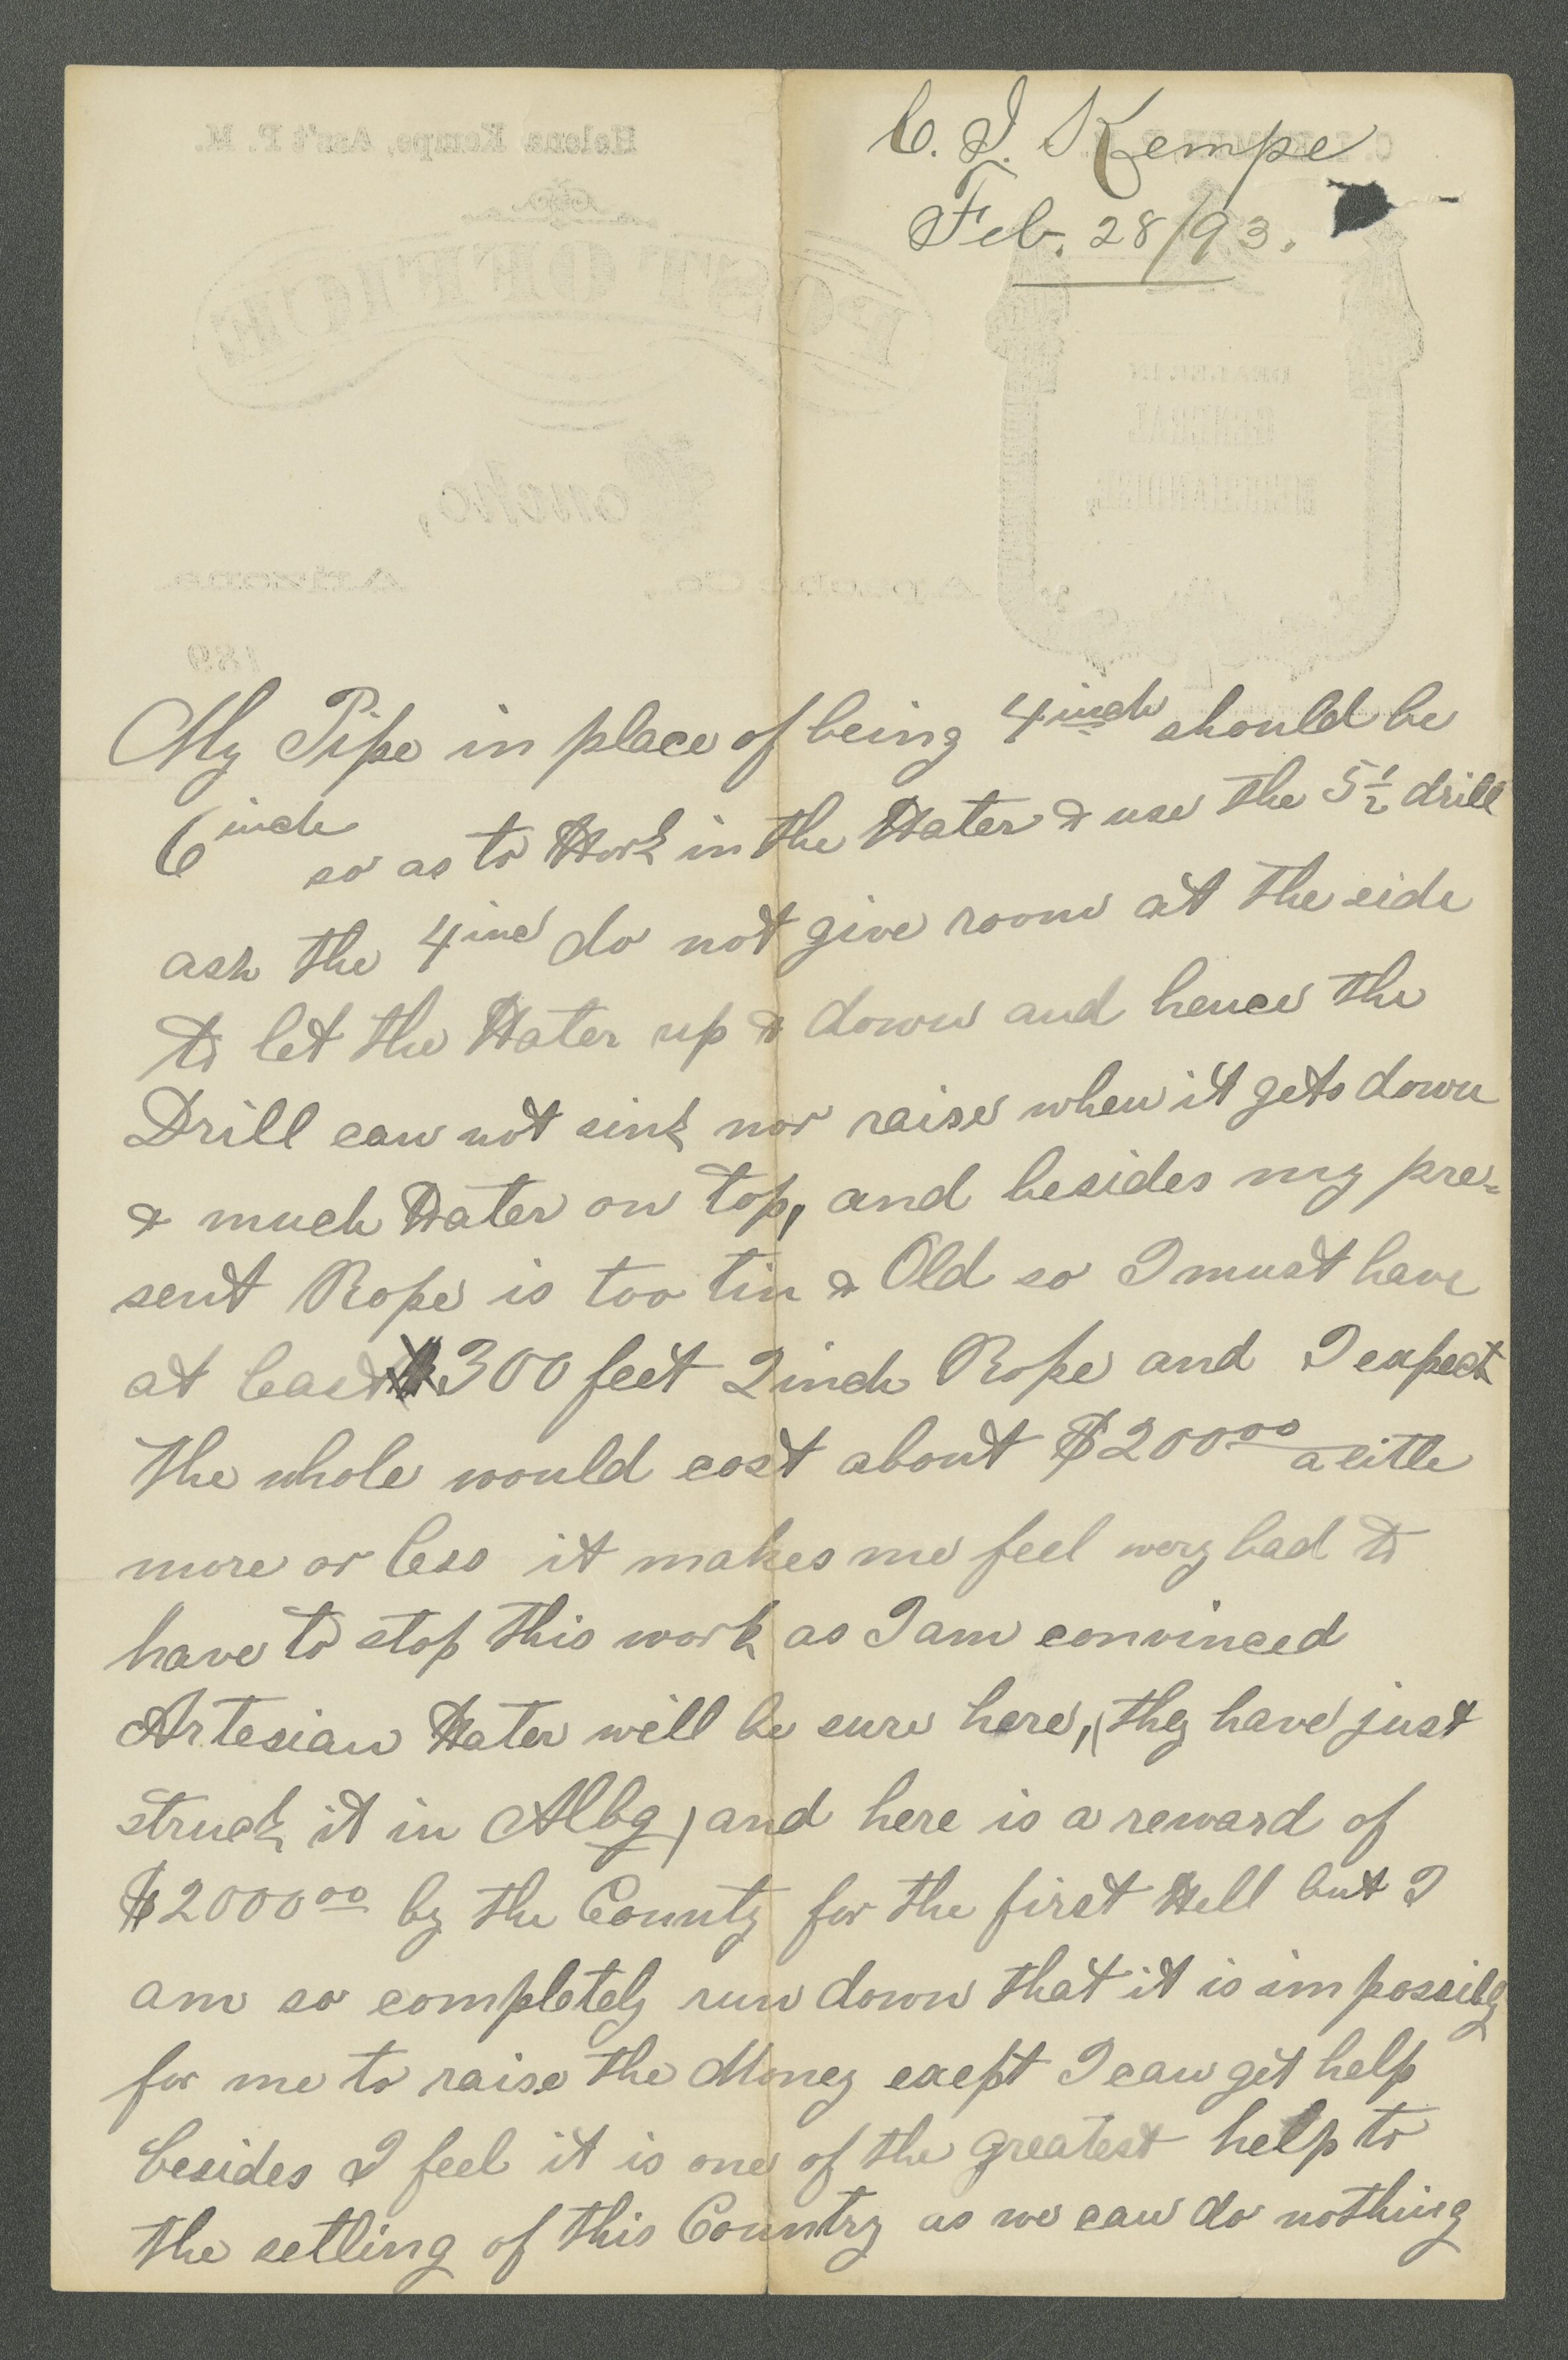 C. I. Kempe
Feb. 28/93.
Helena Kempe, Ass't P. M.
POST OFFICE
DEALER IN
GENERAL
MERCHANDISE,
Concho,
Apache Co., Arizona.
189
My Pipe in place of being 4 inch should be
6 inch so as to Work in the Water & use the 5½ drill
ash the 4 inc do not give room at the side
to let the Water up & down and hence the
Drill can not sink nor raise when it gets down
& much Water on top, and besides my pre=
sent Rope is too tin & Old so I must have
at least 300 feet 2 inch Rope and I expect
the whole would cost about $200 00 a little
more or less it makes me feel wery bad to
have to stop this work as I am convinced
Artesian Water will be sure here, (they have just
struck it in Albq) and here is a reward of
$2000 00 by the County for the first Well but I
am so completely run down that it is impossibly
for me to raise the Money exept I can get help
besides I feel it is one of the greatest help to
the setling of this Country as we can do nothing